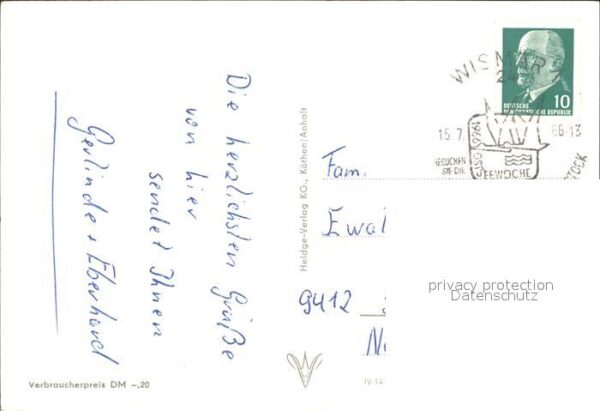 Die herzlichsten Grüße
von hier
sendet Ihnen
Gerlinde + Eberhard
Verbraucherpreis DM -,20
Heldge-Verlag KO., Köthen/Anhalt
IV-14-
WISMAR
2
15.7.
66-13
1966
BESUCHEN
SIE DIE
OSTSEEWOCHE
DEUTSCHE
DEMOKRATISCHE REPUBLIK
10
Fam.
Ewal
9412
privacy protection
Datenschutz